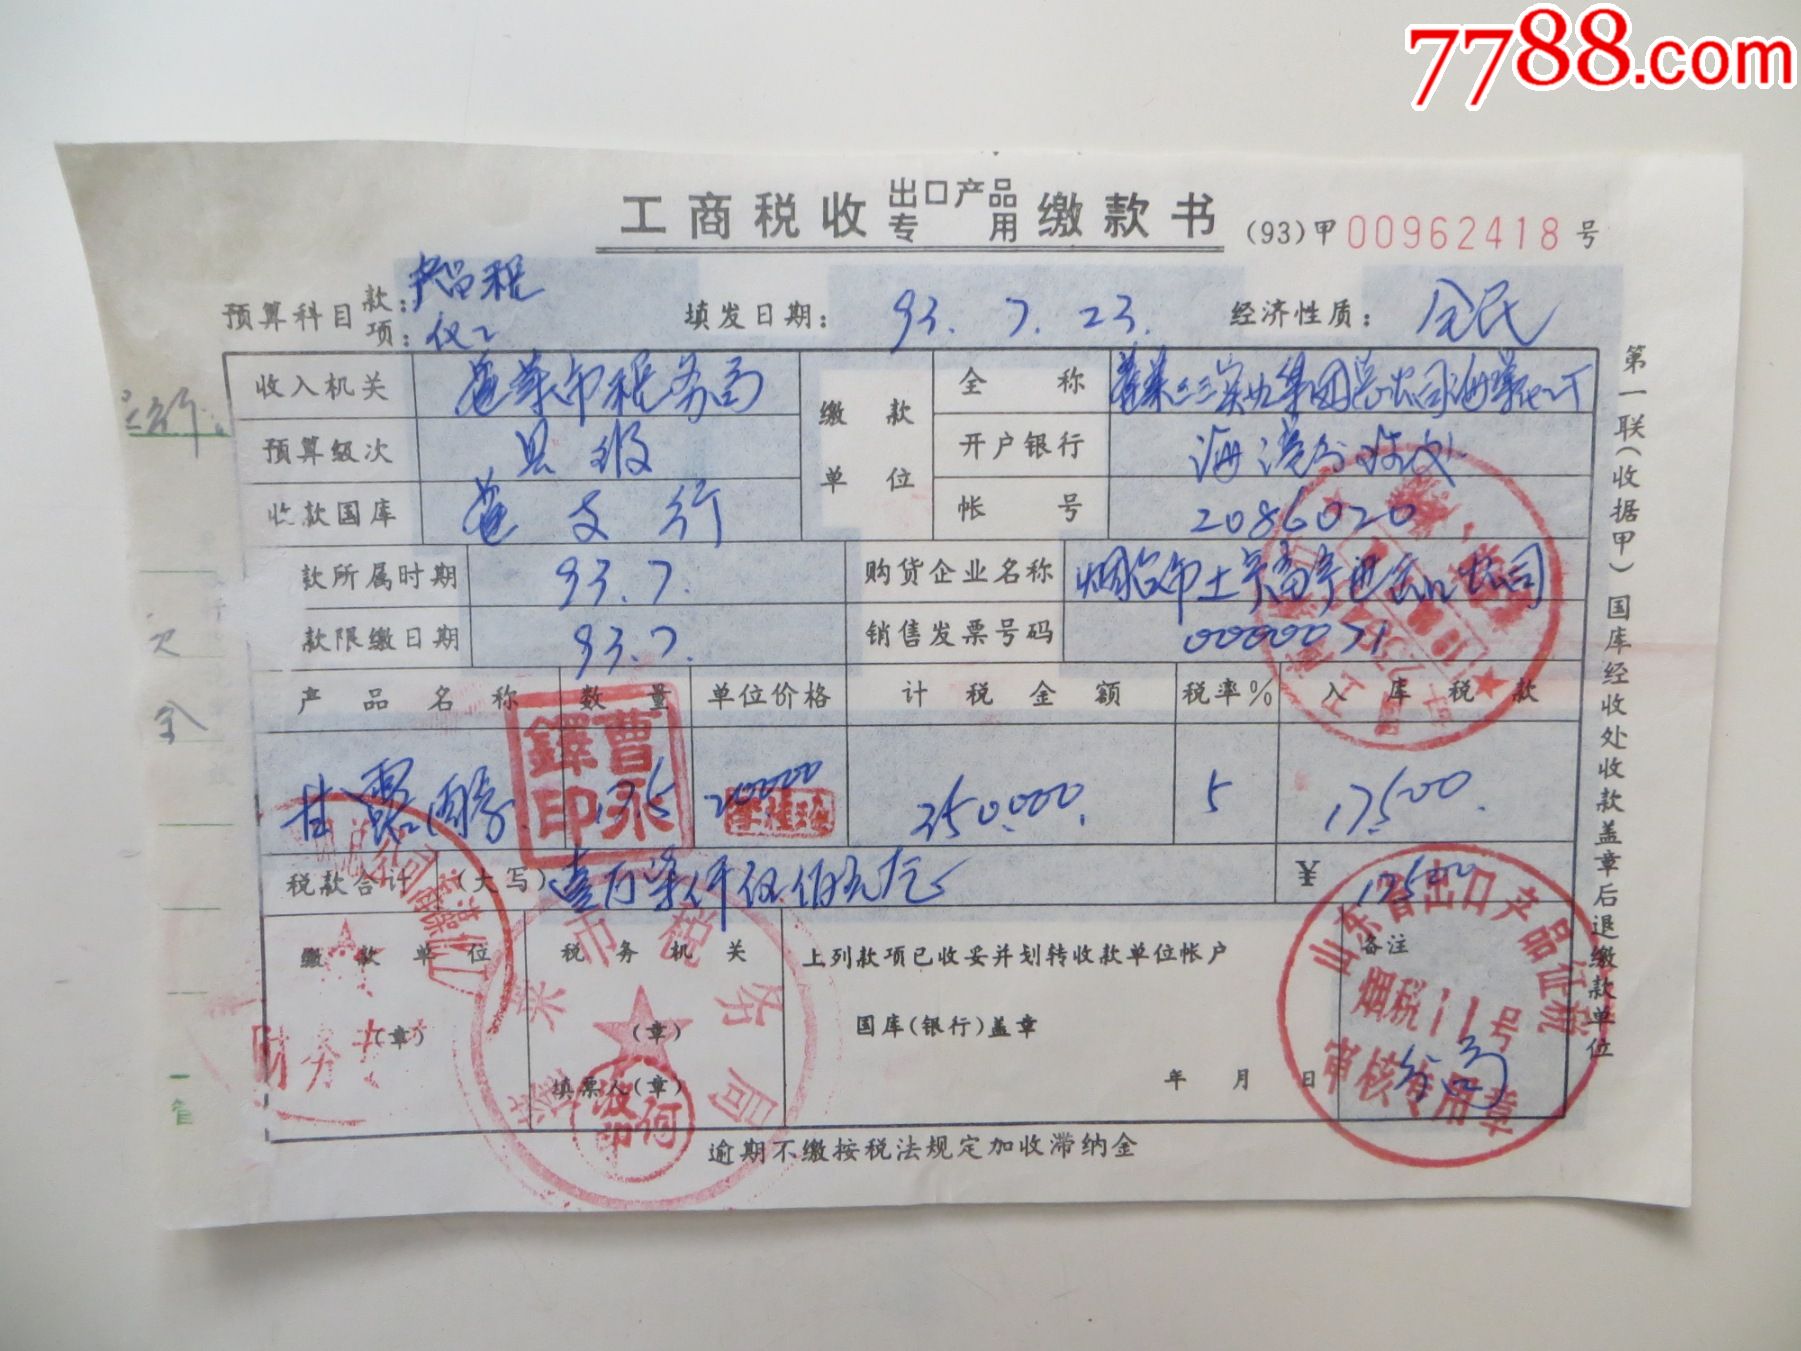 7788.com
工商税收出口产品专用缴款书 (93)甲00962418号
预算科目 款:产品税 填发日期: 93. 7. 23. 经济性质: 全民
项:化工
收入机关 蓬莱市税务局 缴款单位 全称
预算级次 县级 开户银行
收款国库 蓬支行 帐号 2086020
款所属时期 93.7. 购货企业名称 烟台市土产畜产进出口公司
款限缴日期 93.7. 销售发票号码 00000071
产品名称 数量 单位价格 计税金额 税率% 入库税款
甘露醇 17.5 20000 350.000. 5 17500.
税款合计 (大写) 壹万柒仟伍佰元正 ¥ 17500
缴款单位 税务机关 上列款项已收妥并划转收款单位帐户 备注
(章) (章) 国库(银行)盖章
填票人(章) 年 月 日
逾期不缴按税法规定加收滞纳金
第一联(收据甲)国库经收处收款盖章后退缴款单位
曹永鐸印
莱市税务局
山东省出口产品征税
烟税11号
审核专用章
财务